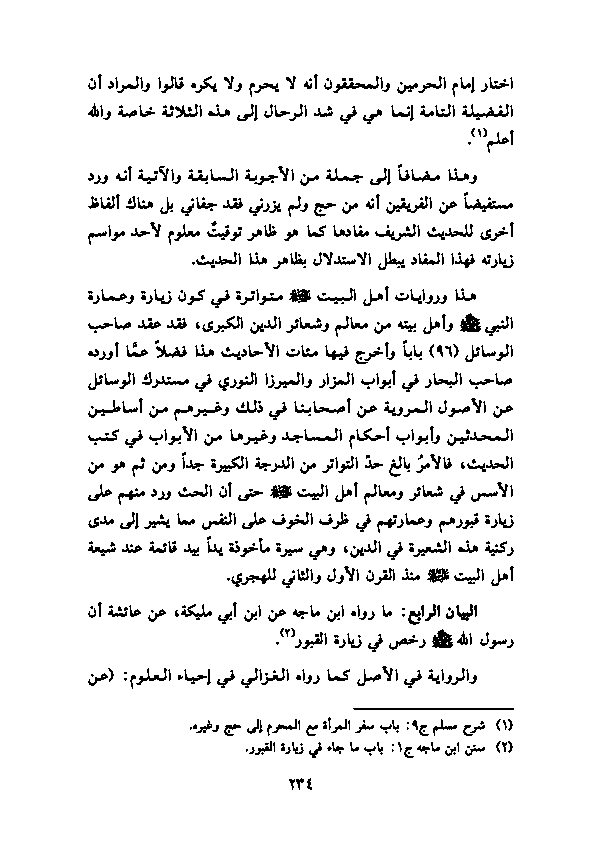 اختار إمام الحرمين والمحققون أنه لا يحرم ولا يكره قالوا والمراد أن
الفضيلة التامة إنما هي في شد الرحال إلى هذه الثلاثة خاصة والله
أعلم(١).
وهذا مضافاً إلى جملة من الأجوبة السابقة والآتية أنه ورد
مستفيضاً عن الفريقين أنه من حج ولم يزرني فقد جفاني بل هناك ألفاظ
أخرى للحديث الشريف مفادها كما هو ظاهر توقيتٌ معلوم لأحد مواسم
زيارته فهذا المفاد يبطل الاستدلال بظاهر هذا الحديث.
هذا وروايات أهل البيت متواترة في كون زيارة وعمارة
النبي ﷺ وأهل بيته من معالم وشعائر الدين الكبرى، فقد عقد صاحب
الوسائل (٩٦) باباً وأخرج فيها مئات الأحاديث هذا فضلاً عمَّا أورده
صاحب البحار في أبواب المزار والميرزا النوري في مستدرك الوسائل
عن الأصول المروية عن أصحابنا في ذلك وغيرهم من أساطين
المحدثين وأبواب أحكام المساجد وغيرها من الأبواب في كتب
الحديث، فالأمرُ بالغ حدّ التواتر من الدرجة الكبيرة جداً ومن ثم هو من
الأسس في شعائر ومعالم أهل البيت حتى أن الحث ورد منهم على
زيارة قبورهم وعمارتهم في ظرف الخوف على النفس مما يشير إلى مدى
ركنية هذه الشعيرة في الدين، وهي سيرة مأخوذة يداً بيد قائمة عند شيعة
أهل البيت منذ القرن الأول والثاني للهجري.
البيان الرابع: ما رواه ابن ماجه عن ابن أبي مليكة، عن عائشة أن
رسول الله ﷺ رخص في زيارة القبور(٢).
والرواية في الأصل كما رواه الغزالي في إحياء العلوم: (عن
(١) شرح مسلم ج٩: باب سفر المرأة مع المحرم إلى حج وغيره.
(٢) سنن ابن ماجه ج١: باب ما جاء في زيارة القبور.
٢٣٤